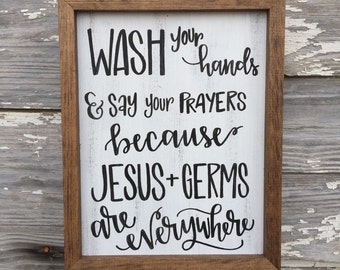 WASH your hands
& SAY your PRAYERS
because
JESUS + GERMS
are everywhere